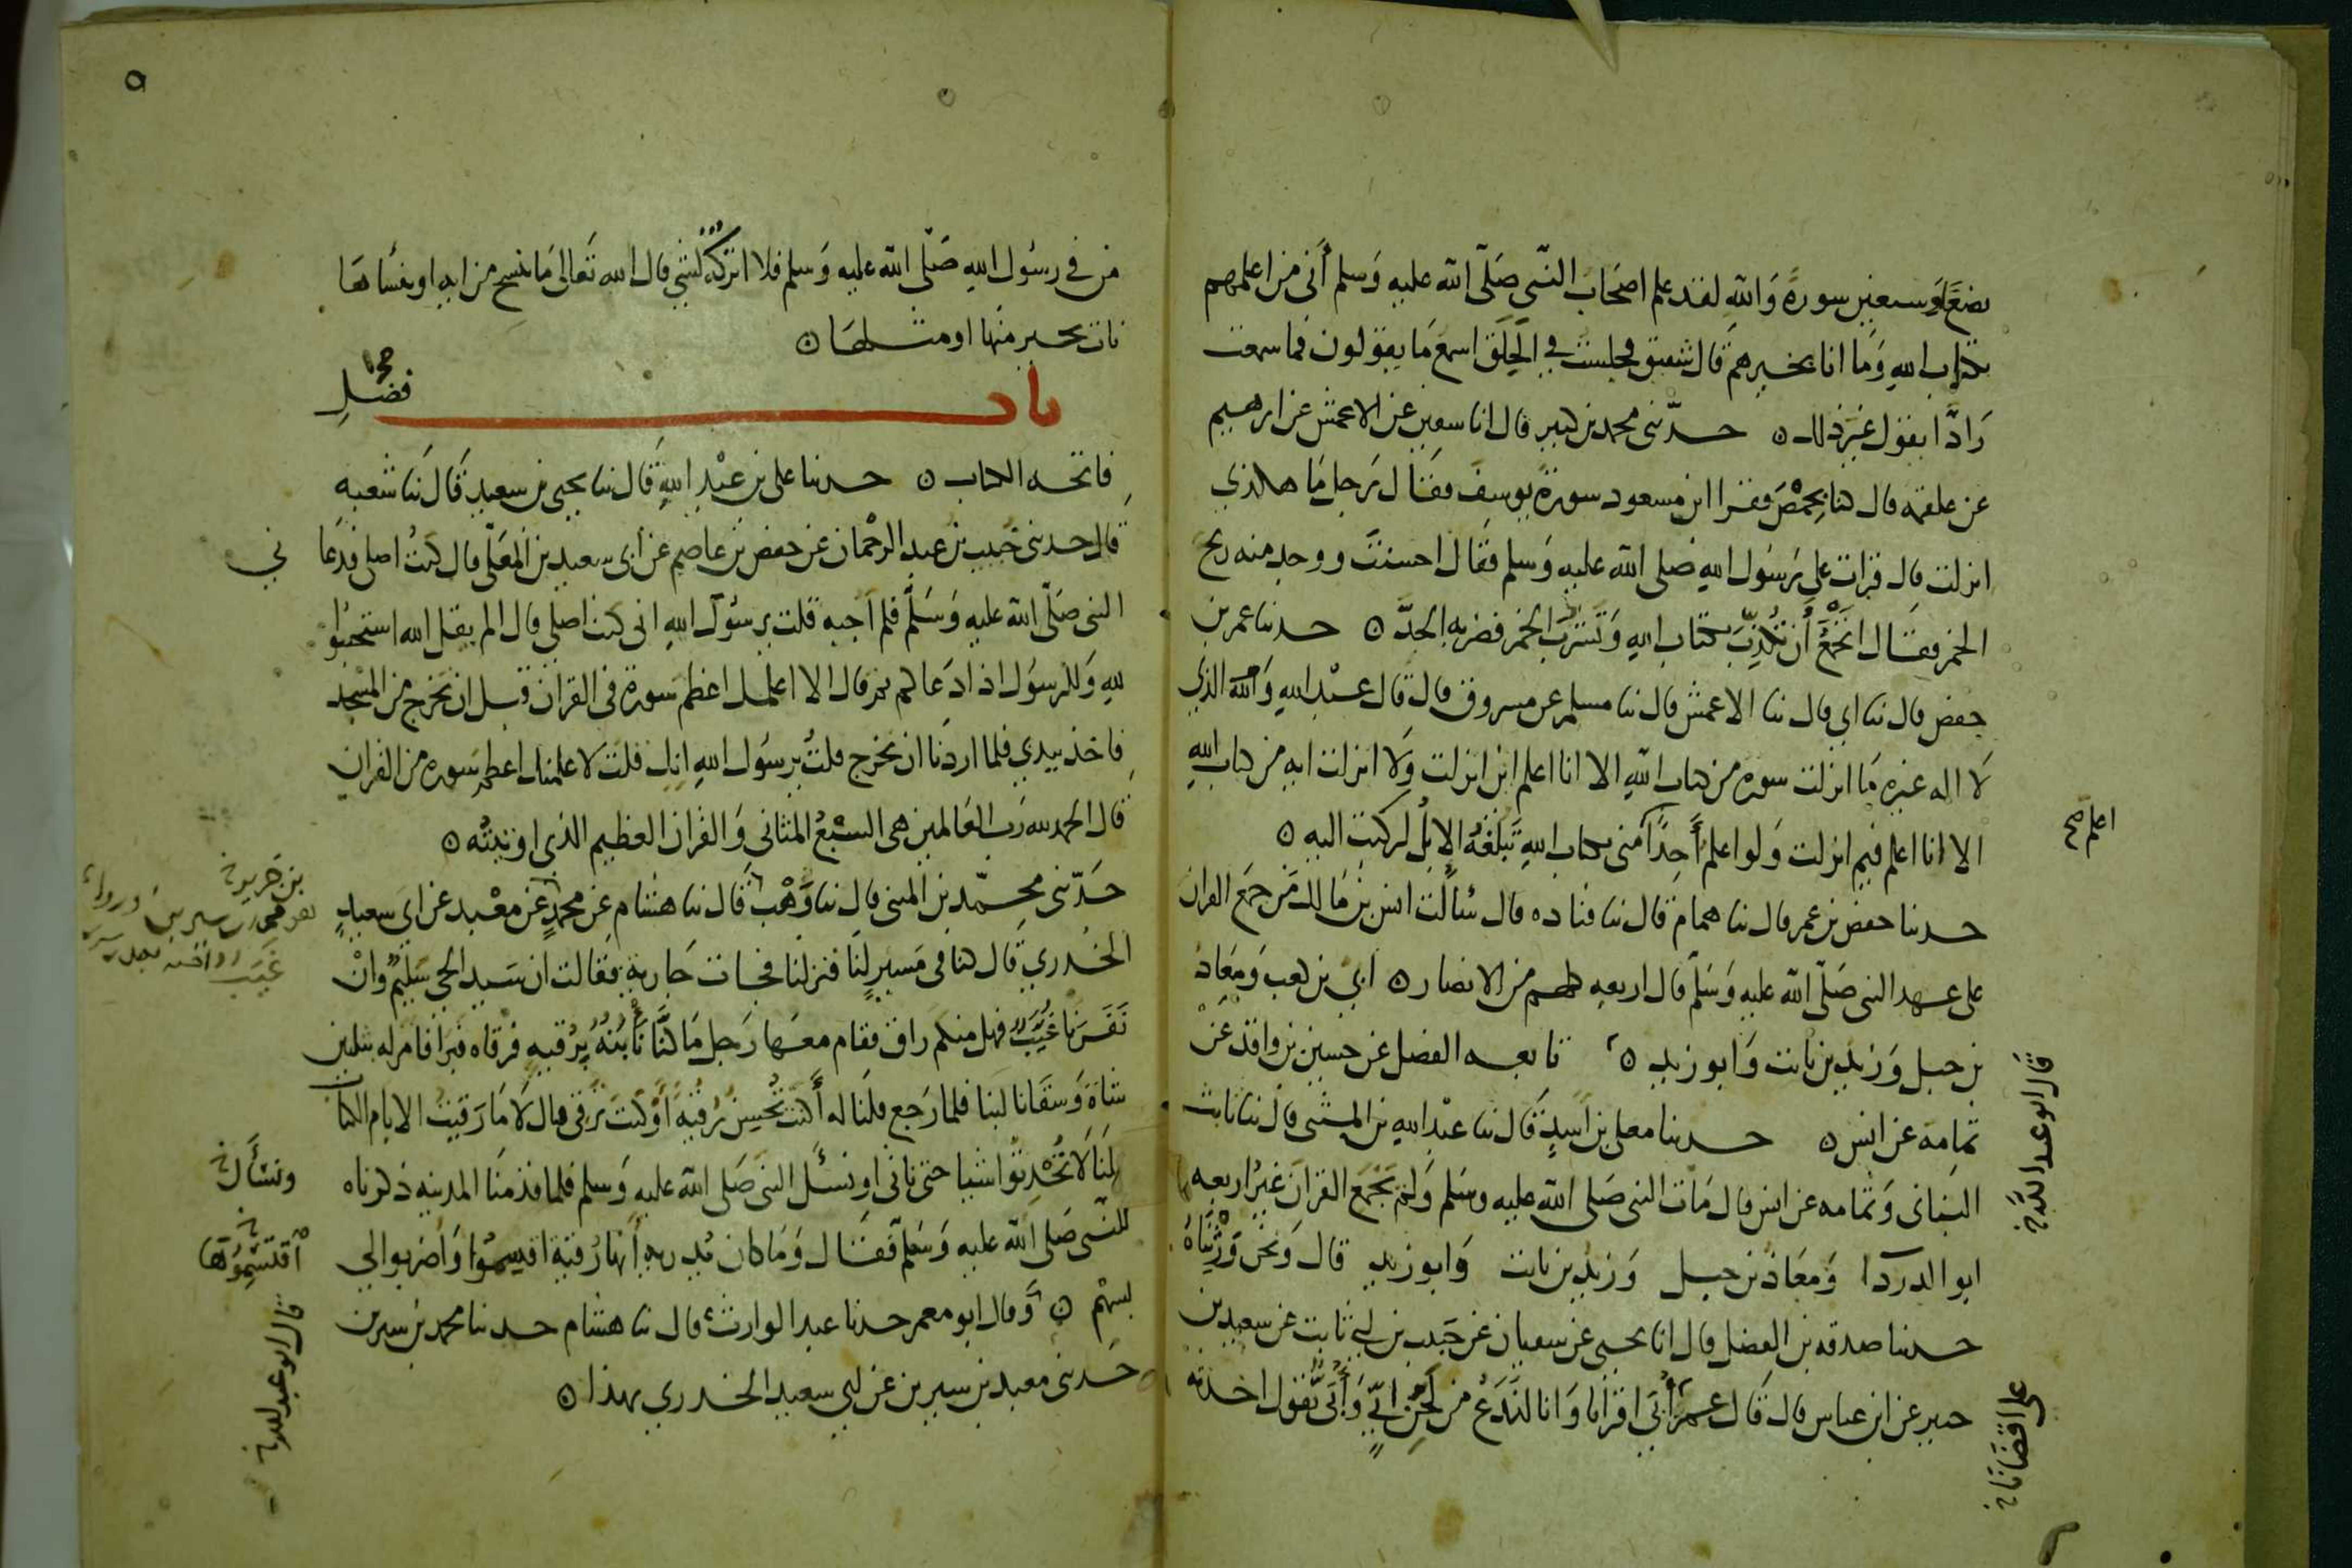 بضعًا وسبعين سورةً وَاللهِ لقد علم اصحَاب النّبي صَلّى الله عليه وَسلم أَني من اعلمهم
بكتاب اللهِ وَمَا انا بخيرهم قال شقيق فجلست في الحِلَق اسمع مَا يقولون فما سمعت
رَادًّا يقول غير ذلك ۝ حدّثني محمد بن كثير قال انا سفين عن الاعمش عن ابرهيم
عن علقمه قال كنا بحِمْصَ فقرا ابن مسعود سورة يوسف فقال رَجل مَا هكذي
انزلت قال قرات على رَسُول اللهِ صَلى الله عليه وَسلم فقال احسنتَ ووجد منه ريح
الخمر فقال اتجمع أَن تُكذِّبَ بكتاب اللهِ وَتَشْرَبَ الخمر فضربه الحدَّ ۝ حدثنا عمر بن
حفص قال ثنا ابي قال ثنا الاعمش قال ثنا مسلم عن مسروق قال قال عبْد اللهِ وَاللهِ الذي
لَا اله غيره مَا انزلت سوره من كتاب اللهِ الا انا اعلم اين انزلت وَلَا انزلت ايه من كتاب اللهِ
الا انا اعلم فيم انزلت وَلو اعلم أَحِدًا منى بكتاب اللهِ تَبلغهُ الإِبلُ لركبت اليه ۝
اعلم صح
حدثنا حفص بن عمر قال ثنا همام قال ثنا قتاده قال سَالت انس بن مَالك مَن جمَع القران
على عهد النبى صَلّى الله عليه وَسَلّم قال اربعه كلهم من الانصار ۝ أبي بن كعب وَمعَاذ
بن جبل وَزيد بن ثابت وَابو زيد ۝ تابعه الفضل عن حسين بن واقد عن
ثمامه عن انس ۝ حدثنا معلى بن اسَدٍ قال ثنا عبْد اللهِ بن المثنى قال ثنا ثابت
قال ابو عبد الله
البنانى وَثمامه عن انس قال مَات النبى صَلى الله عليه وسَلم وَلم يَجْمَع القرانَ غيرُ اربعه
ابو الدردا وَمعَاذ بن جبل وَزيد بن ثابت وَابو زيد قال وَنحن وَرِثْنَاهُ
حدثنا صدقه بن الفضل قال انا يحيى عن سفيان عن حَبيب بن ابي ثابت عن سعيد بن
جبير عن ابن عباس قال قال عمر أُبَي اقرأنا وَانا لنَدَعُ من لَحْنِ ابَيٍّ وَأُبَيٌّ يَقول اخذته
على اقضانا
من في رسُول اللهِ صَلّى الله عليه وَسلم فلا اتركه لشي قال الله تَعَالى مَا ننسخ من ايه او ننسَاهَا
نات بخير منها او مثلها ۝
باب فضلِ
فاتحه الكتاب ۝ حدثنا على بن عبْد اللهِ قال ثنا يحيى بن سعيد قال ثنا شعبه
قال حدثنى خبيب بن عبد الرحمان عن حفص بن عاصم عن ابى سعيد بن المُعَلّى قال كنتُ اصلى فدعا
ني
النبى صَلّى الله عليه وَسَلّم فلم اجبه قلت يرسُول اللهِ انى كنت اصلى قال الم يقل الله استجيبُوا
للهِ وَللرسُول اذا دَعَاكم ثم قال الا اعلمك اعظم سورة فى القران قبل ان تخرج من المسْجد
فاخذ بيدي فلما اردنا ان نخرج قلتُ يرسُول اللهِ انك قلت لاعلمنك اعظم سوره من القران
قال الحمد لله رَب العَالمين هى السبْعُ المثانى وَالقران العظيم الذى اوتيتُه ۝
حَدّثنى محمّد بن المثنى قال ثنا وَهْب قال ثنا هشام عن محمدٍ عن معْبد عن ابى سعيدٍ
بن جَرير
الخدري قال كنا فى مَسيرٍ لنَا فنزلنا فجات جَاريةٌ فقالت ان سَيد الحي سَليمٌ وانْ
نَفَرَنا غُيَّبٌ فهل منكم راق فقام معهَا رَجل مَا كُنّا نَأبُنُهُ بِرُقيهٍ فرقاه فبَرَا فامر له بثلثين
شاةً وَسَقَانا لبنا فلما رَجع قلنَا له أَكنتَ تُحْسِن رُقيهً أَوْ كنتَ ترقى قال لَا مَا رَقيت الا بام الكتاب
قلنَا لَا تُحْدِثُوا شيا حتى ناتى او نسْئَل النبى صَلى الله عليه وَسلم فلما قدمنَا المدينه ذكرناه
ونسْأَل
للنّبي صَلى الله عليه وَسَلّم فقال وَمَا كان يُدريهِ أَنها رُقيةٌ اقسِموُا وَاضربوا لي
اقتَسِمُوها
بسَهْم ۝ وَقال ابو معمر حدثنا عبد الوارث قال ثنا هشام حدثنا محمد بن سيرين
حَدثنى معبد بن سيرين عن ابي سعيد الخدري بهذا ۝
قال ابو عبد الله